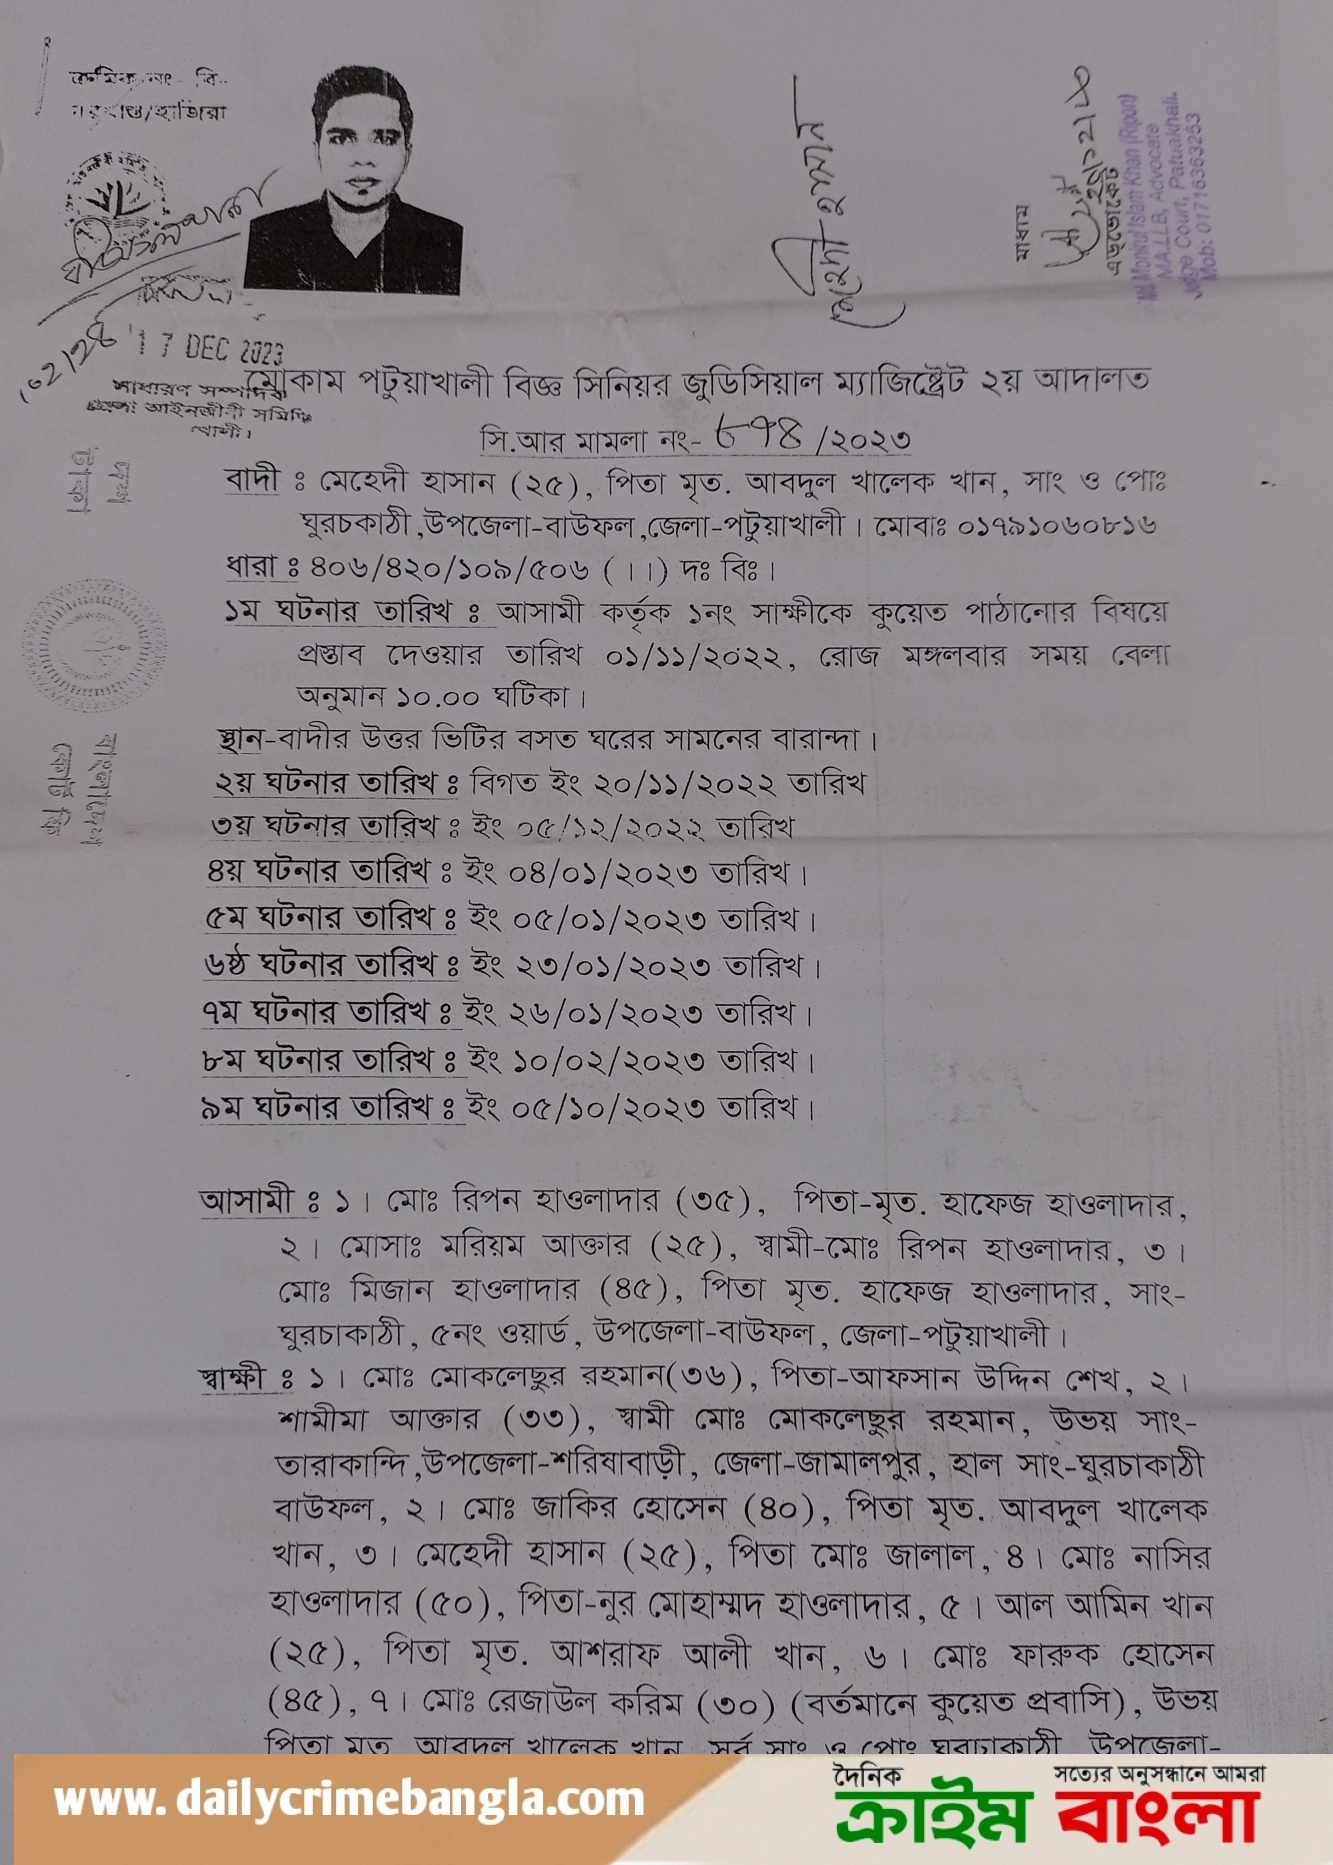 17 DEC 2023
সাধারণ সম্পাদক
জেলা আইনজীবী সমিতি
মাধ্যম
এডভোকেট
Md Monirul Islam Khan (Ripon)
MA.LLB, Advocate
Judge Court, Patuakhali.
Mob: 01716363253
মেহেদী হাসান
মোকাম পটুয়াখালী বিজ্ঞ সিনিয়র জুডিসিয়াল ম্যাজিষ্ট্রেট ২য় আদালত
সি.আর মামলা নং- ৮৭৪ /২০২৩
বাদী ঃ মেহেদী হাসান (২৫), পিতা মৃত. আবদুল খালেক খান, সাং ও পোঃ
ঘুরচকাঠী ,উপজেলা-বাউফল ,জেলা-পটুয়াখালী । মোবাঃ ০১৭৯১০৬০৮১৬
ধারা ঃ ৪০৬/৪২০/১০৯/৫০৬ (।।) দঃ বিঃ ।
১ম ঘটনার তারিখ ঃ আসামী কর্তৃক ১নং সাক্ষীকে কুয়েত পাঠানোর বিষয়ে
প্রস্তাব দেওয়ার তারিখ ০১/১১/২০২২, রোজ মঙ্গলবার সময় বেলা
অনুমান ১০.০০ ঘটিকা ।
স্থান-বাদীর উত্তর ভিটির বসত ঘরের সামনের বারান্দা ।
২য় ঘটনার তারিখ ঃ বিগত ইং ২০/১১/২০২২ তারিখ
৩য় ঘটনার তারিখ ঃ ইং ০৫/১২/২০২২ তারিখ
৪য় ঘটনার তারিখ ঃ ইং ০৪/০১/২০২৩ তারিখ ।
৫ম ঘটনার তারিখ ঃ ইং ০৫/০১/২০২৩ তারিখ ।
৬ষ্ঠ ঘটনার তারিখ ঃ ইং ২৩/০১/২০২৩ তারিখ ।
৭ম ঘটনার তারিখ ঃ ইং ২৬/০১/২০২৩ তারিখ ।
৮ম ঘটনার তারিখ ঃ ইং ১০/০২/২০২৩ তারিখ ।
৯ম ঘটনার তারিখ ঃ ইং ০৫/১০/২০২৩ তারিখ ।
আসামী ঃ ১ । মোঃ রিপন হাওলাদার (৩৫), পিতা-মৃত. হাফেজ হাওলাদার,
২ । মোসাঃ মরিয়ম আক্তার (২৫), স্বামী-মোঃ রিপন হাওলাদার, ৩ ।
মোঃ মিজান হাওলাদার (৪৫), পিতা মৃত. হাফেজ হাওলাদার, সাং-
ঘুরচাকাঠী, ৫নং ওয়ার্ড, উপজেলা-বাউফল, জেলা-পটুয়াখালী ।
স্বাক্ষী ঃ ১ । মোঃ মোকলেছুর রহমান(৩৬), পিতা-আফসান উদ্দিন শেখ, ২ ।
শামীমা আক্তার (৩৩), স্বামী মোঃ মোকলেছুর রহমান, উভয় সাং-
তারাকান্দি ,উপজেলা-শরিষাবাড়ী, জেলা-জামালপুর, হাল সাং-ঘুরচাকাঠী
বাউফল, ২ । মোঃ জাকির হোসেন (৪০), পিতা মৃত. আবদুল খালেক
খান, ৩ । মেহেদী হাসান (২৫), পিতা মোঃ জালাল, ৪ । মোঃ নাসির
হাওলাদার (৫০), পিতা-নুর মোহাম্মদ হাওলাদার, ৫ । আল আমিন খান
(২৫), পিতা মৃত. আশরাফ আলী খান, ৬ । মোঃ ফারুক হোসেন
(৪৫), ৭ । মোঃ রেজাউল করিম (৩০) (বর্তমানে কুয়েত প্রবাসি), উভয়
পিতা মৃত আবদুল খালেক খান, সর্ব সাং ও পোঃ ঘুরচাকাঠী, উপজেলা-
দশ
টাকা
বাংলাদেশ
কোর্ট ফি
www. dailycrimebangla.com
দৈনিক
সত্যের অনুসন্ধানে আমরা
ক্রাইম বাংলা